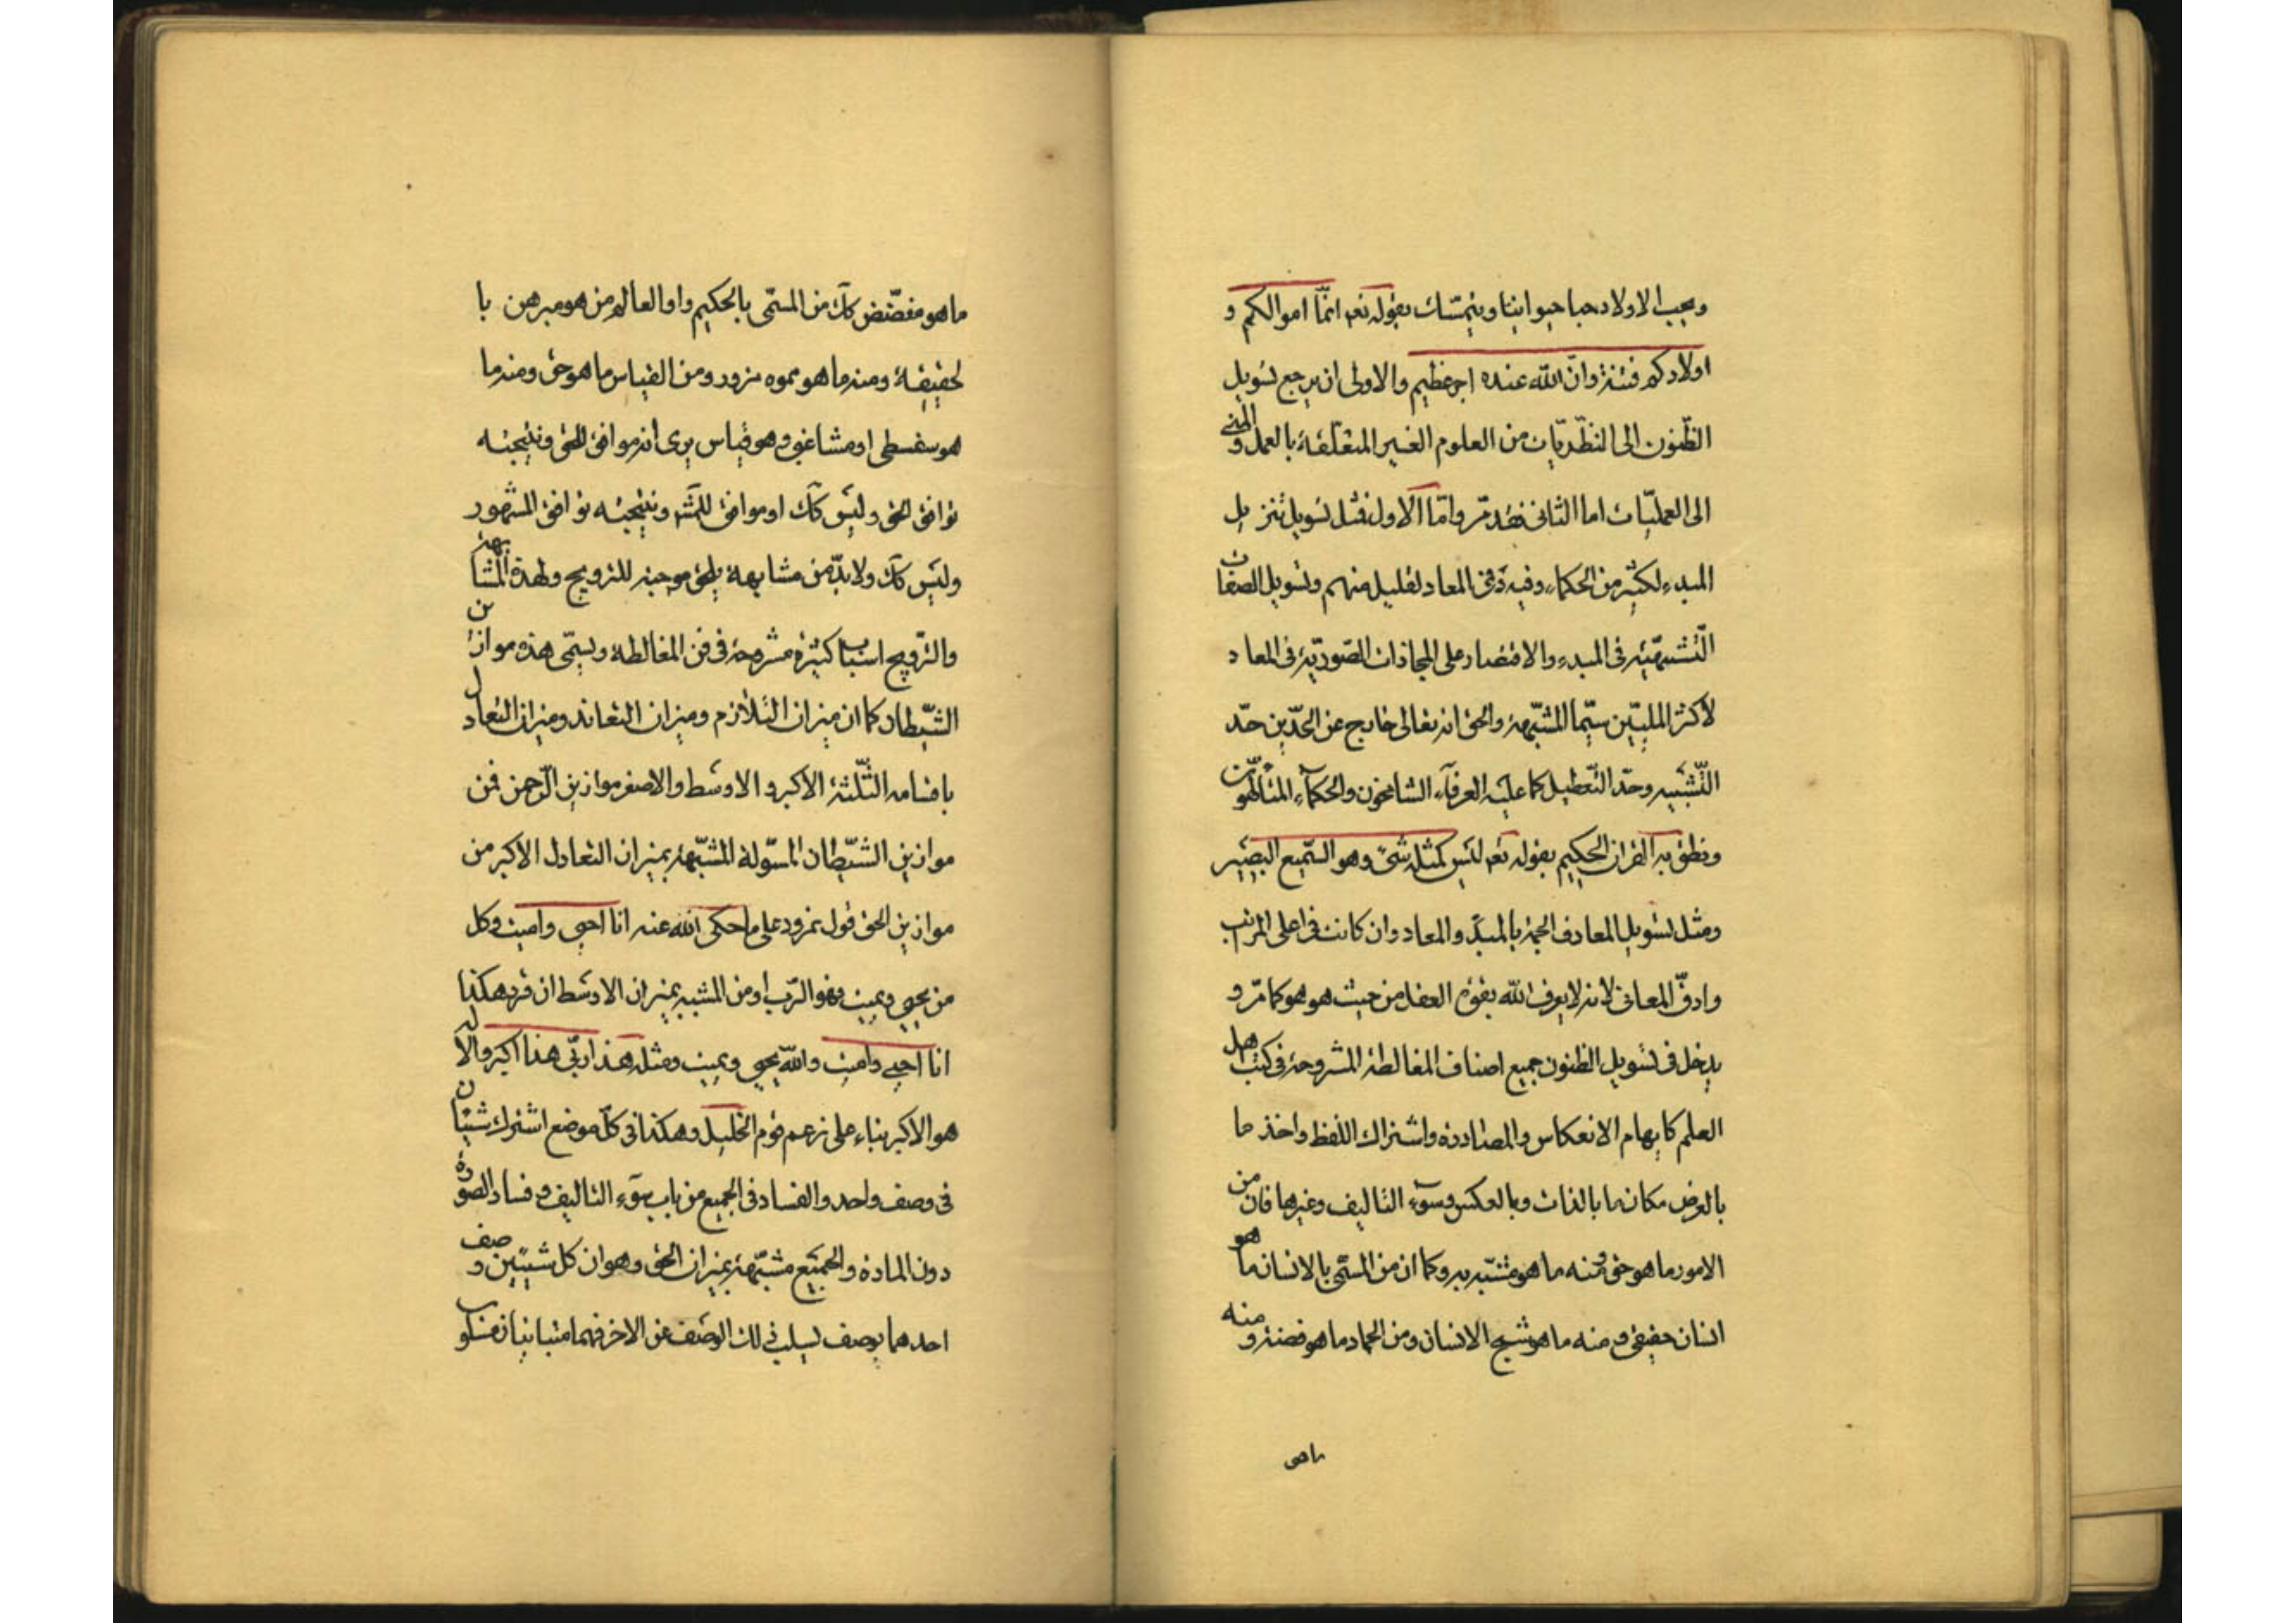 ويحب الاولاد حبا حيوانيا ويتمسّك بقوله تعه انّما اموالكم و
اولادكم فتنة وانّ الله عنده اجر عظيم والاولى ان يرجع تسويل
الظّنون الى النظّريّات من العلوم الغير المتعلّقة بالعمل و المنى
الى العمليّات اما الثانى فقد مرّ وامّا الاول فمثل تسويل تنزيل
المبدء لكثير من الحكماء وفيه نفى المعاد لقليل منهم وتسويل الصفات
التّشبّهيّة فى المبدء والاقتصار على المجازات الصّوريّة فى المعاد
لأكثر الملّيّين سيّما المشبّهة والحق انه تعالى خارج عن الحدّين حدّ
التّشبيه وحدّ التّعطيل كما عليه العرفآء الشامخون والحكمآء المتألّهون
ونطق به القران الحكيم بقوله تعه ليس كمثله شئ وهو السّميع البصير
ومثل تسويل المعارف الجمة بالمبدء والمعاد وان كانت فى اعلى المراتب
وادقّ المعانى لانه لا يعرف الله بقوّم العقل من حيث هو هو كما مرّ و
يدخل فى تسويل الظنون جميع اصناف المغالطة المشروحة فى كتب اهل
العلم كايهام الانعكاس والمصادرة واشتراك اللفظ واخذ ما
بالعرض مكان ما بالذات وبالعكس وسوء التاليف وغيرها فان من
الامور ما هو حق ومنه ما هو مشبّه به وكما ان من المسمّى بالانسان ما هو
انسان حقيقى و منه ما هو شبح الانسان ومن الجماد ما هو فضة و منه
ماهى
ما هو مفضّض كك من المسمّى بالحكيم واو العالم من هو مبرهن با
لحقيقة ومنه ما هو مموه مزور ومن القياس ما هو حق ومنه ما
هو سفسطى او مشاغبى وهو قياس يرى انه موافق للحق ونتيجته
توافق الحق وليس كك او موافق للمشه ونتيجته توافق المشهور
وليس كك ولا بدّ من مشابهة بالحق موجبة للترويج ولهذه المشابهة
والترّويج اسباب كثيرة مشروحة فى فن المغالطة ويسمّى هذه موازين
الشّيطان كما ان ميزان التّلازم وميزان التعاند وميزان التعادل
باقسامه الثّلثة الاكبر والاوسط والاصغر موازين الرّحمن فمن
موازين الشّيطان المسّولة المشبّهة بميزان التعادل الأكبر من
موازين الحق قول نمرود على ما حكى الله عنه انا احيى واميت وكل
من يحيى ويميت فهو الرّب ومن المشبه بميزان الاوسط ان قرر هكذا
انا احيى واميت والله يحيى ويميت ومثله هذا ربّى هذا اكبر والاله
هو الاكبر بناء على زعم قوم الخليل وهكذا فى كلّ موضع اشترك شيئان
فى وصف واحد والفساد فى الجميع من باب سوء التاليف و فساد الصورة
دون المادة والجميع مشبّهة بميزان الحق وهو ان كل شيئين وصف
احدهما بوصف يسلب ذلك الوصف عن الاخر فهما متباينان